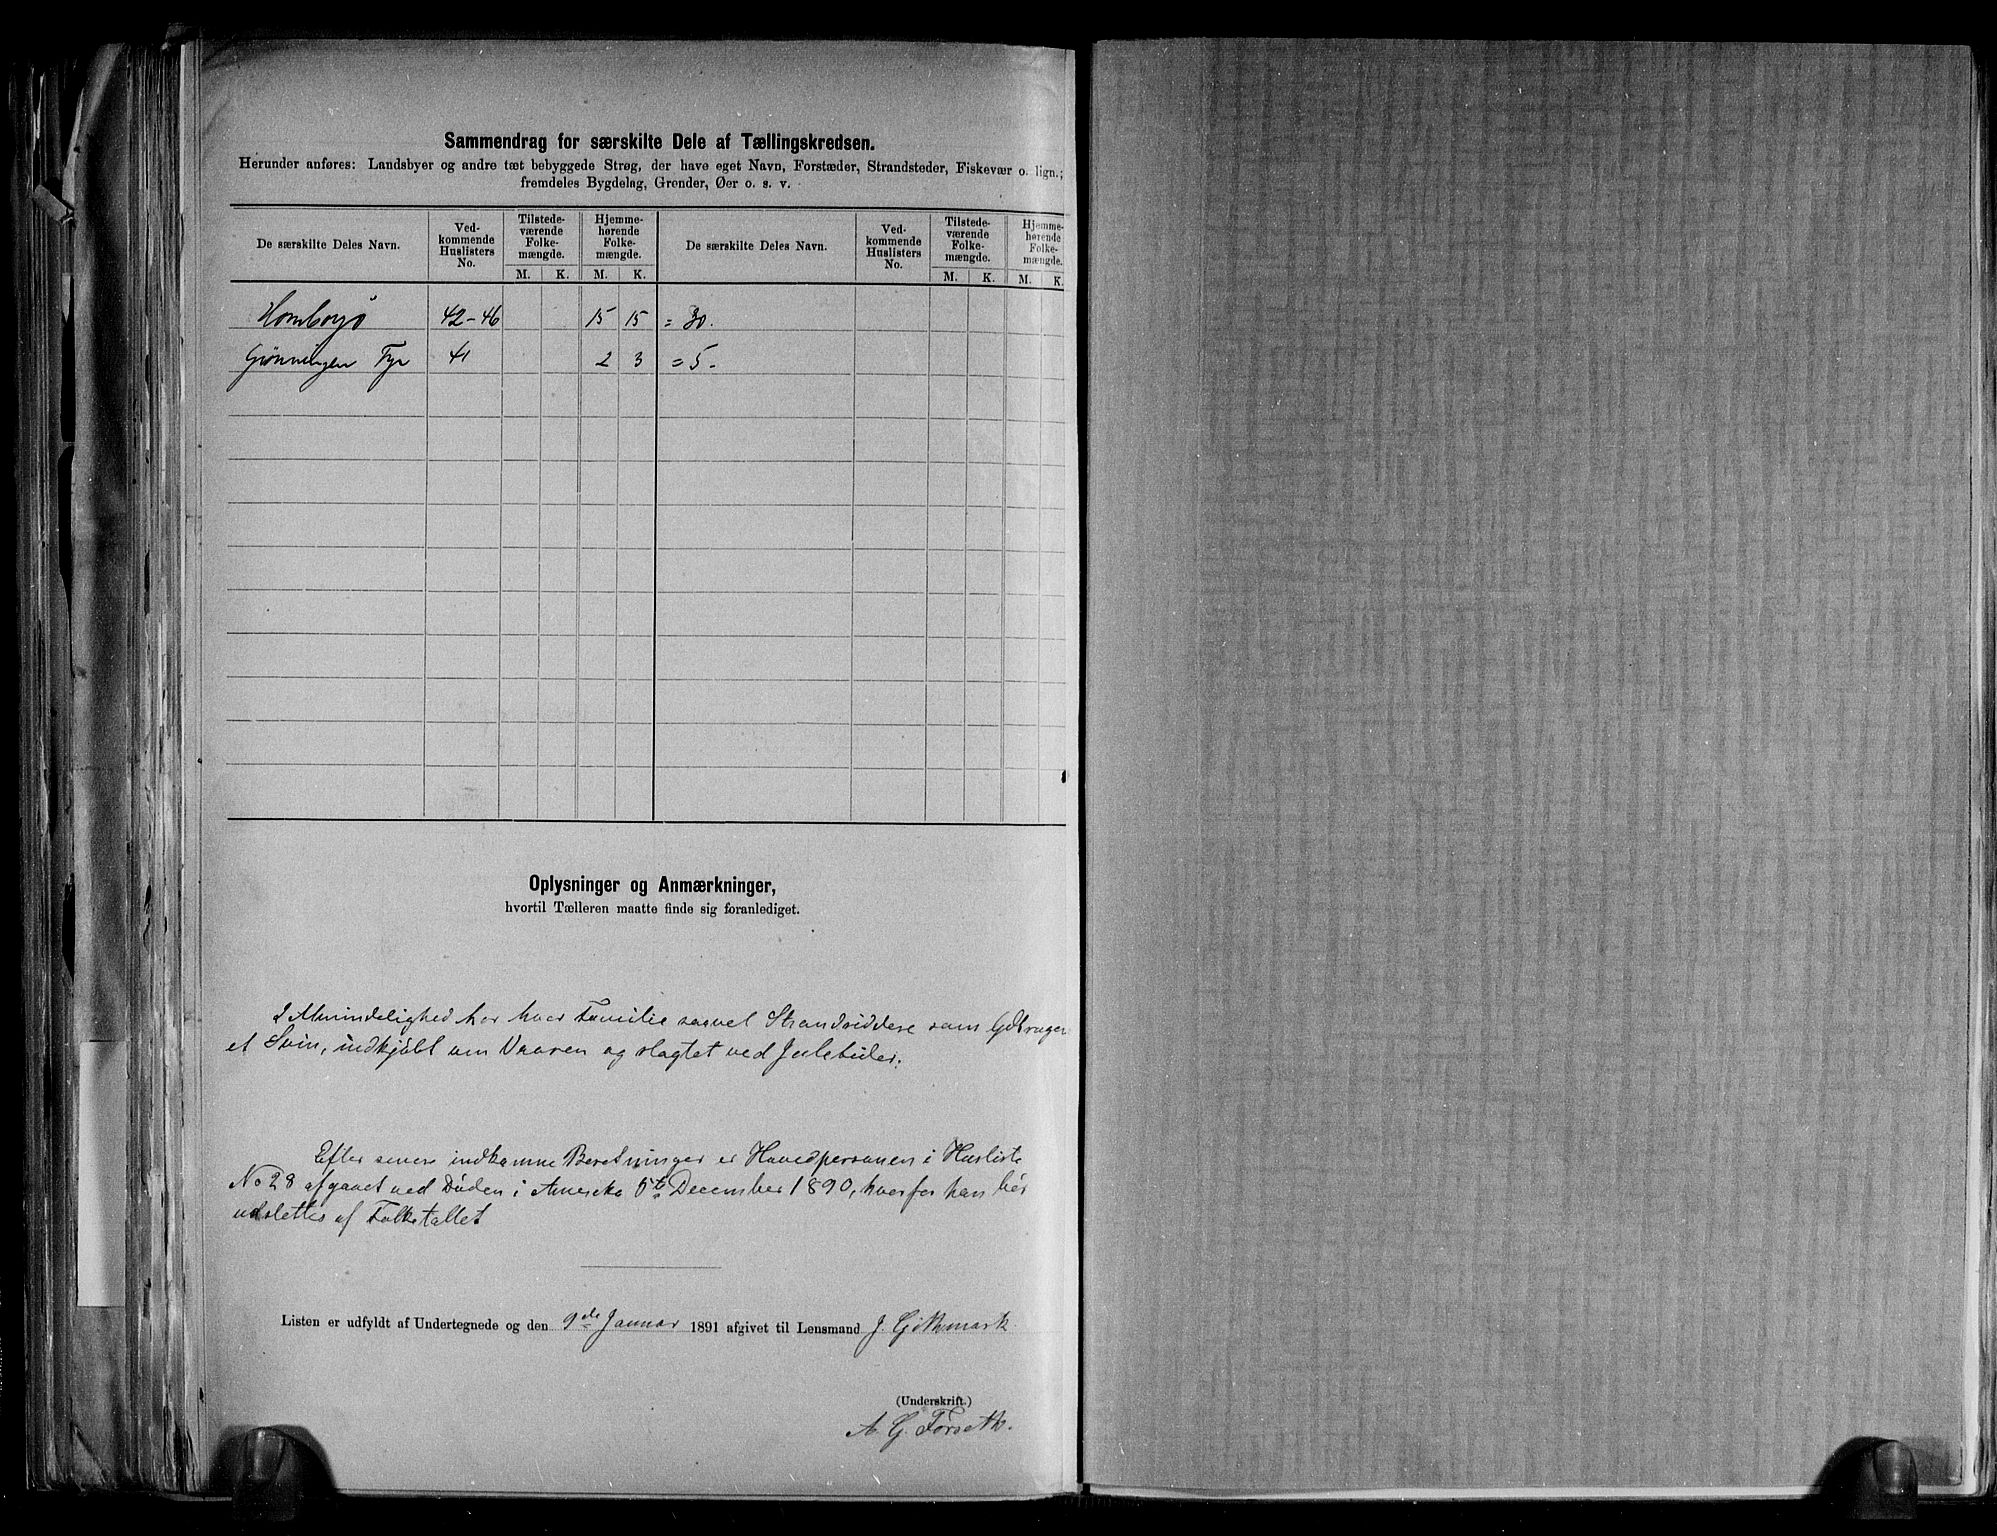 Sammendrag for særskilte Dele af Tællingskredsen.
Herunder anføres: Landsbyer og andre tæt bebyggede Strøg, der have eget Navn, Forstæder, Strandsteder, Fiskevær o. lign.;
fremdeles Bygdelag, Grender, Øer o. s. v.
De særskilte Deles Navn. Ved-kommende Huslisters No. Tilstede-værende Folke-mængde. M. K. Hjemme-hørende Folke-mængde. M. K. De særskilte Deles Navn. Ved-kommende Huslisters No. Tilstede-værende Folke-mængde. M. K. Hjemme-hørende Folke-mængde. M. K.
Homborgø 42-46 15 15 = 30.
Grønningen Fyr 41 2 3 = 5.
Oplysninger og Anmærkninger,
hvortil Tælleren maatte finde sig foranlediget.
I Almindelighed har hver Familie saavel Strandsiddere som Gdbruger
et Svin, indkjøbt om Vaaren og slagtet ved Juletider.
Efter senere indkomne Beretninger er Hovedpersonen i Husliste
No 28 afgaaet ved Døden i Amerika 5te December 1890, hvorfor han bør
udslettes af Folketallet
Listen er udfyldt af Undertegnede og den 9de Januar 1891 afgivet til Lensmand J. Githmark
(Underskrift.)
A. G. Forseth.